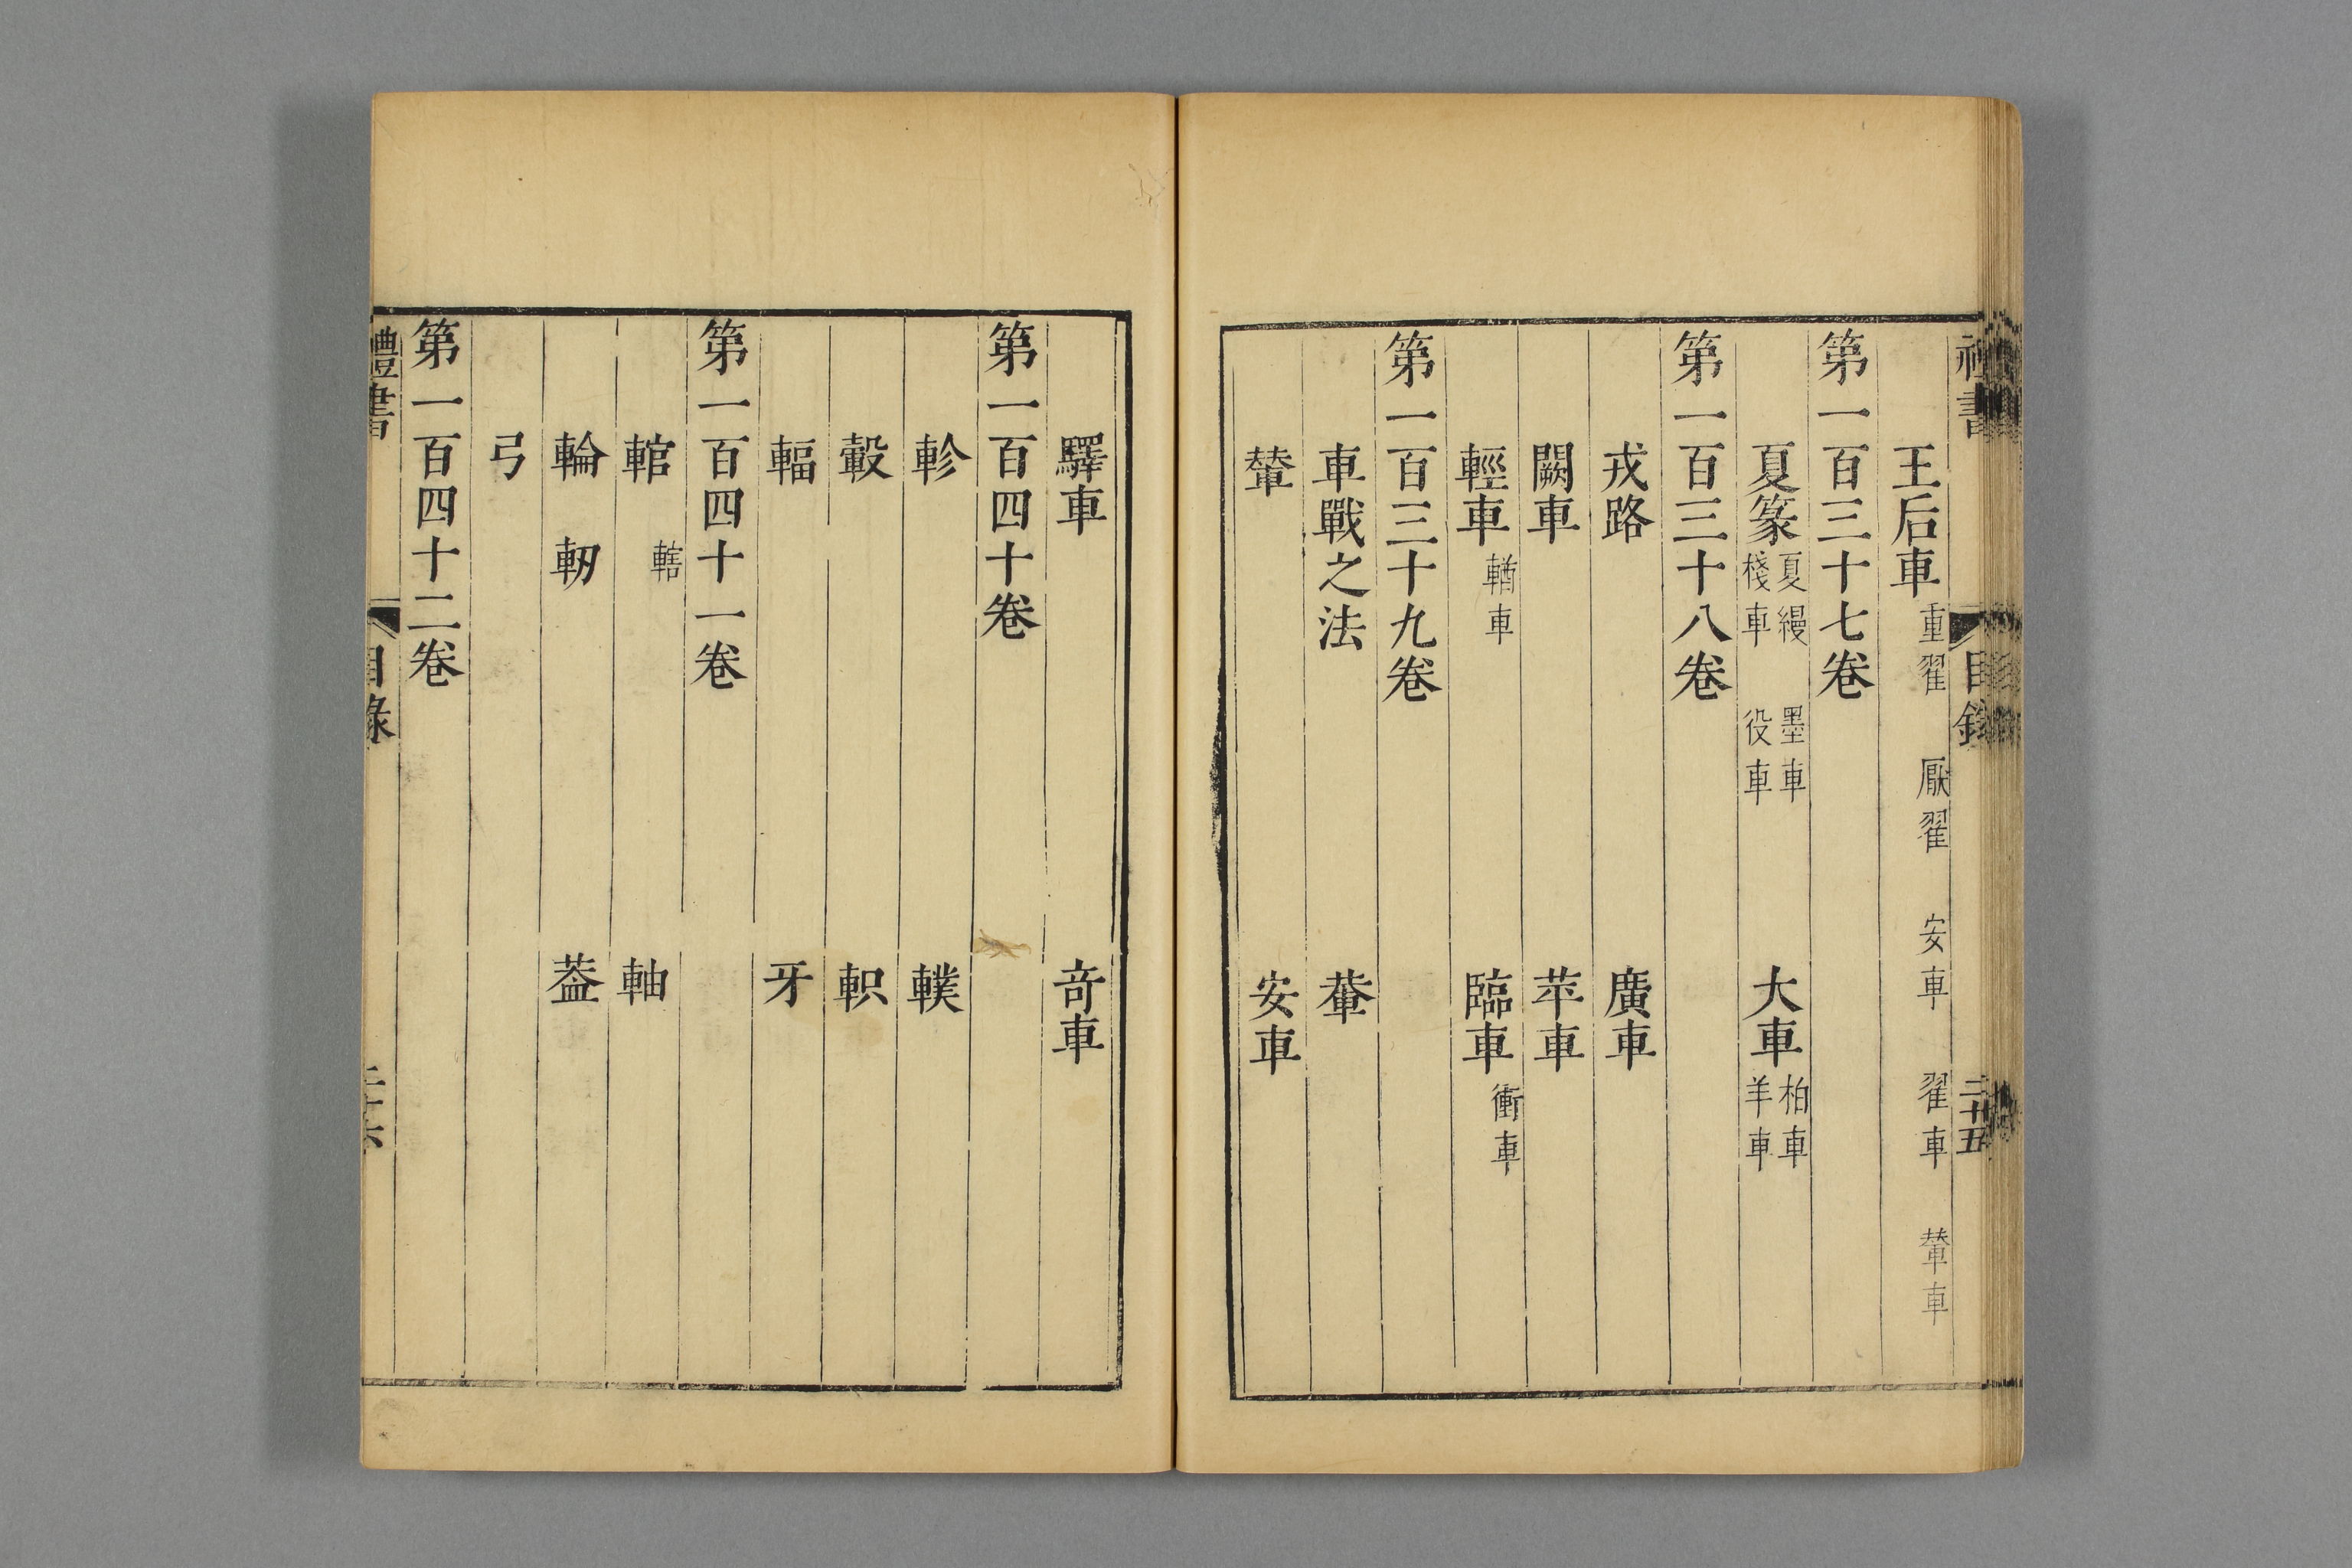 書
目錄
二十五
王后車 重翟 厭翟 安車 翟車 輦車
第一百三十七卷
夏篆 夏縵 墨車 棧車 役車 大車 柏車 羊車
第一百三十八卷
戎路 廣車
闕車 苹車
輕車 輶車 臨車 衝車
第一百三十九卷
車戰之法 輂
輦 安車
驛車 竒車
第一百四十卷
軫 轐
轂 軹
輻 牙
第一百四十一卷
輨 轄 軸
輪 軔 葢
弓
第一百四十二卷
禮書
目錄
二十六